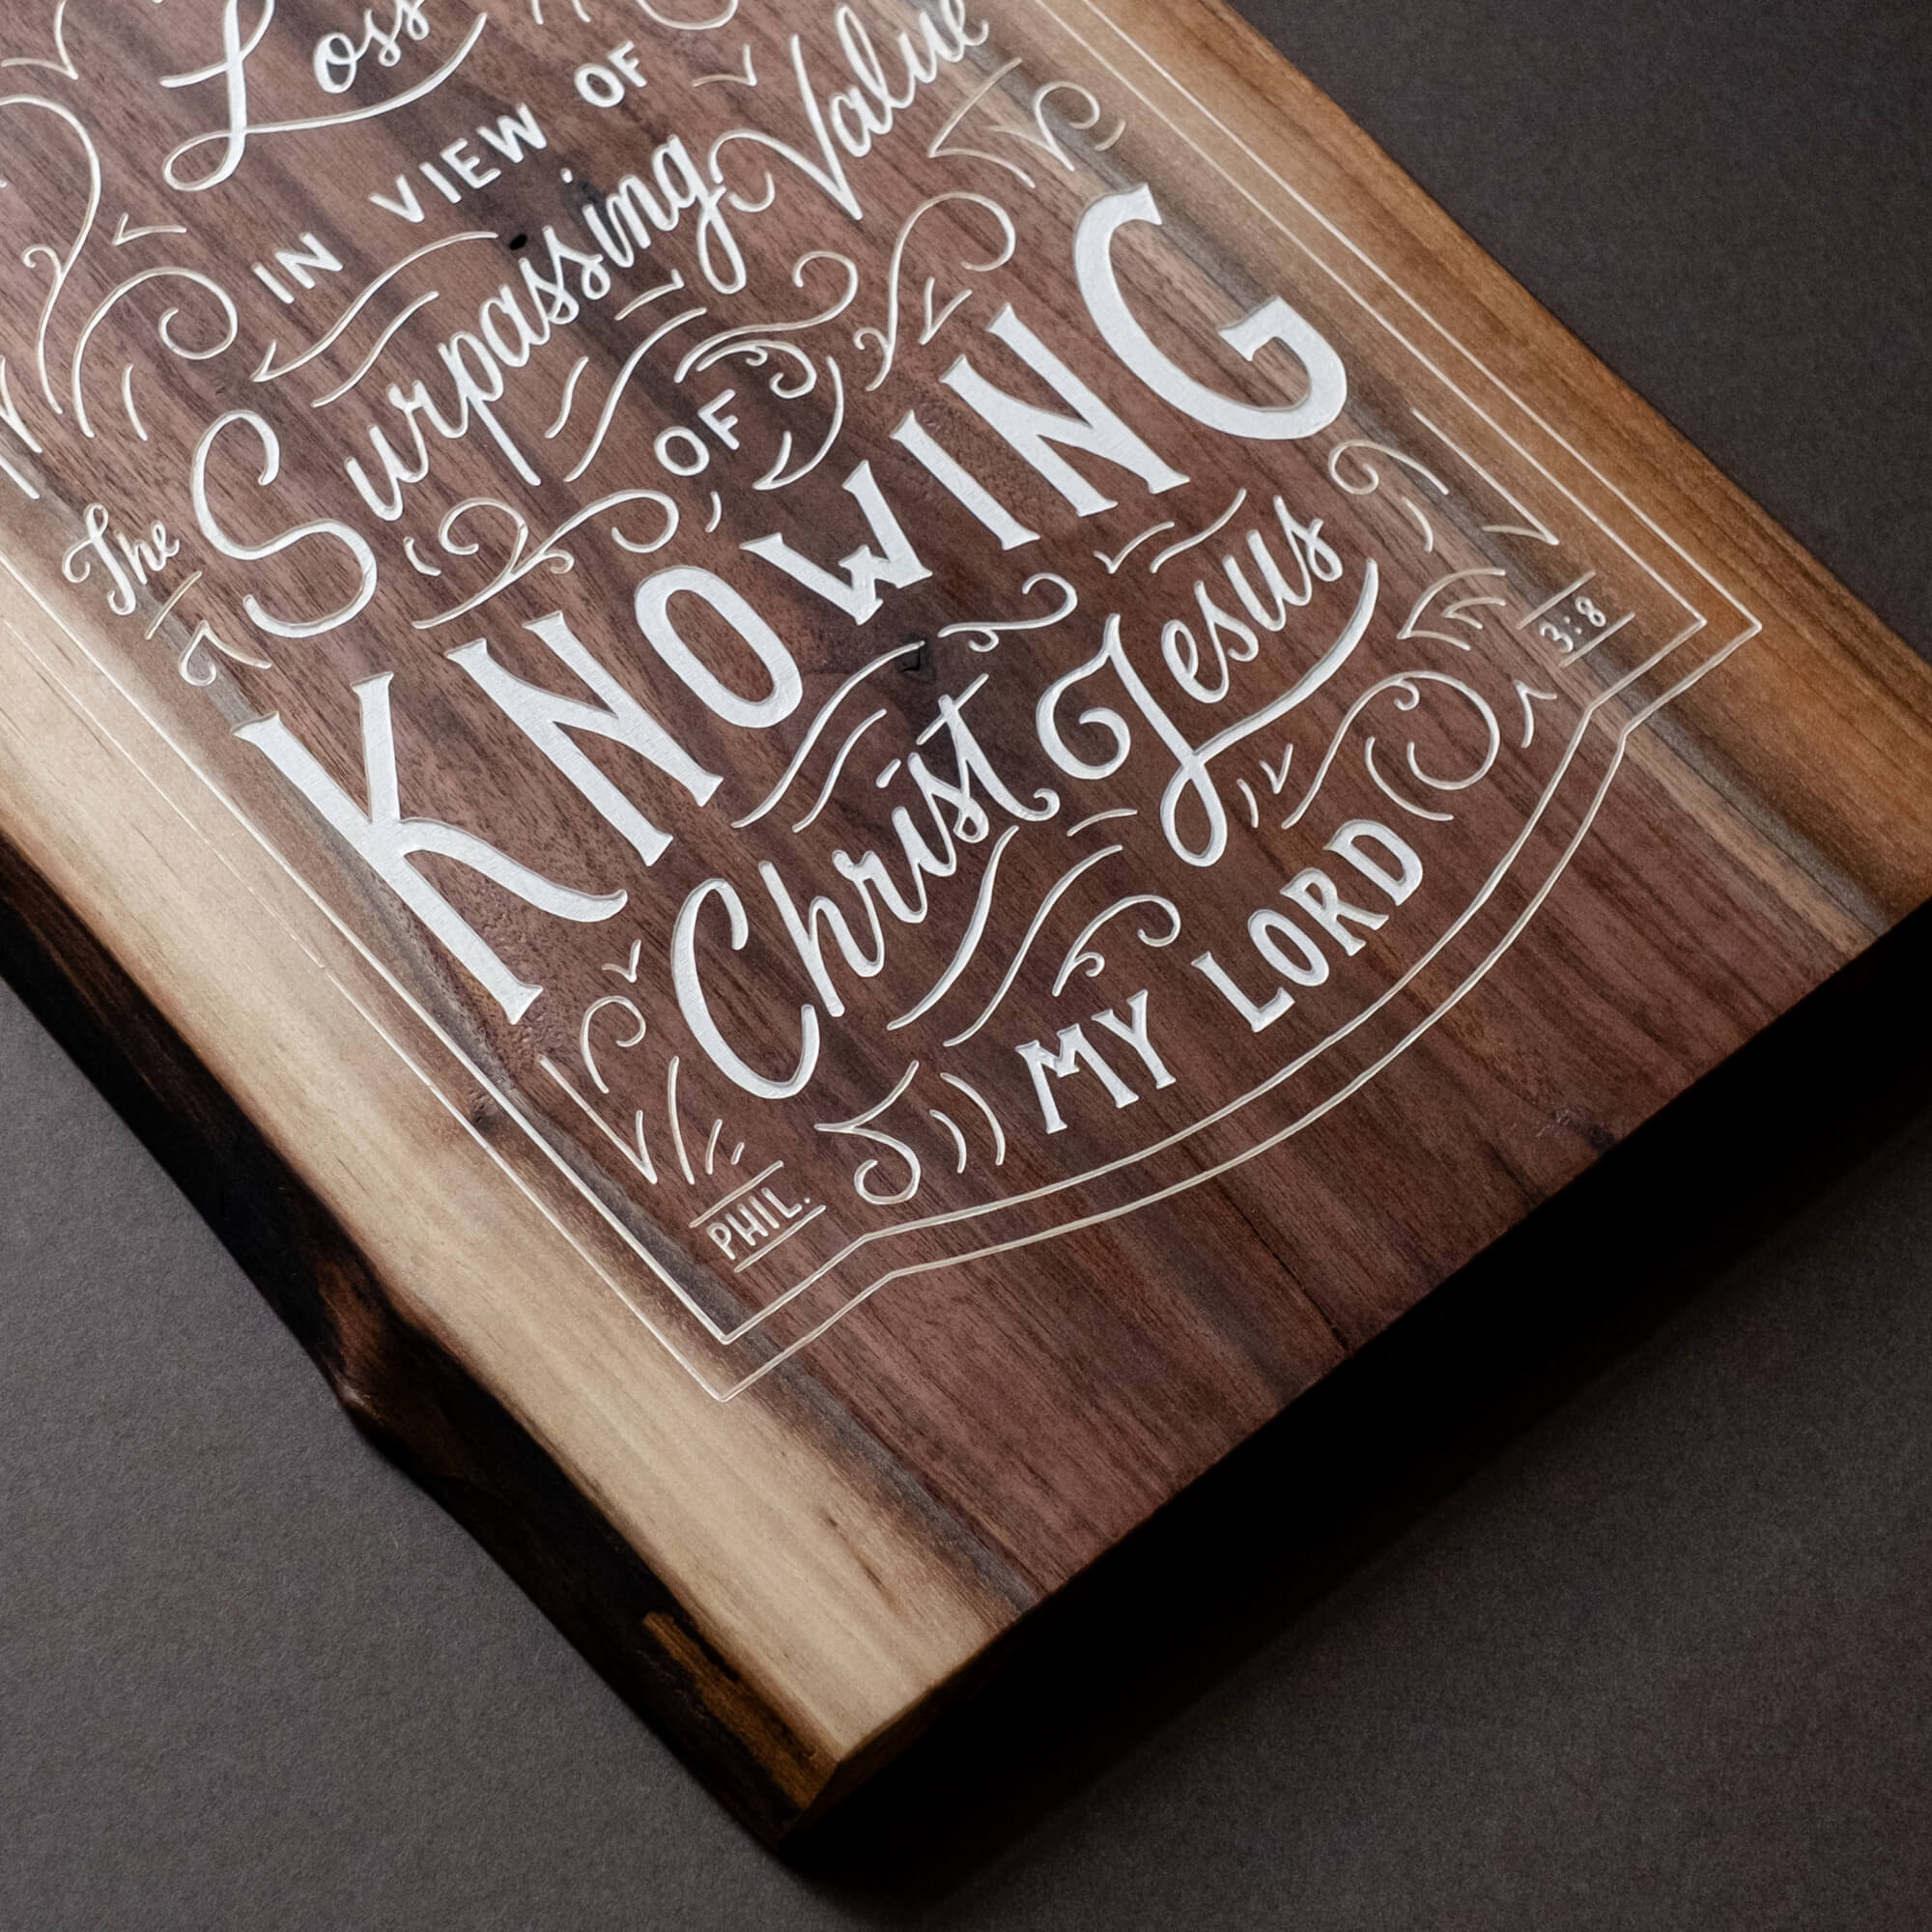 Loss
IN VIEW OF
The Surpassing Value
OF
KNOWING
Christ Jesus
MY LORD
PHIL. 3:8